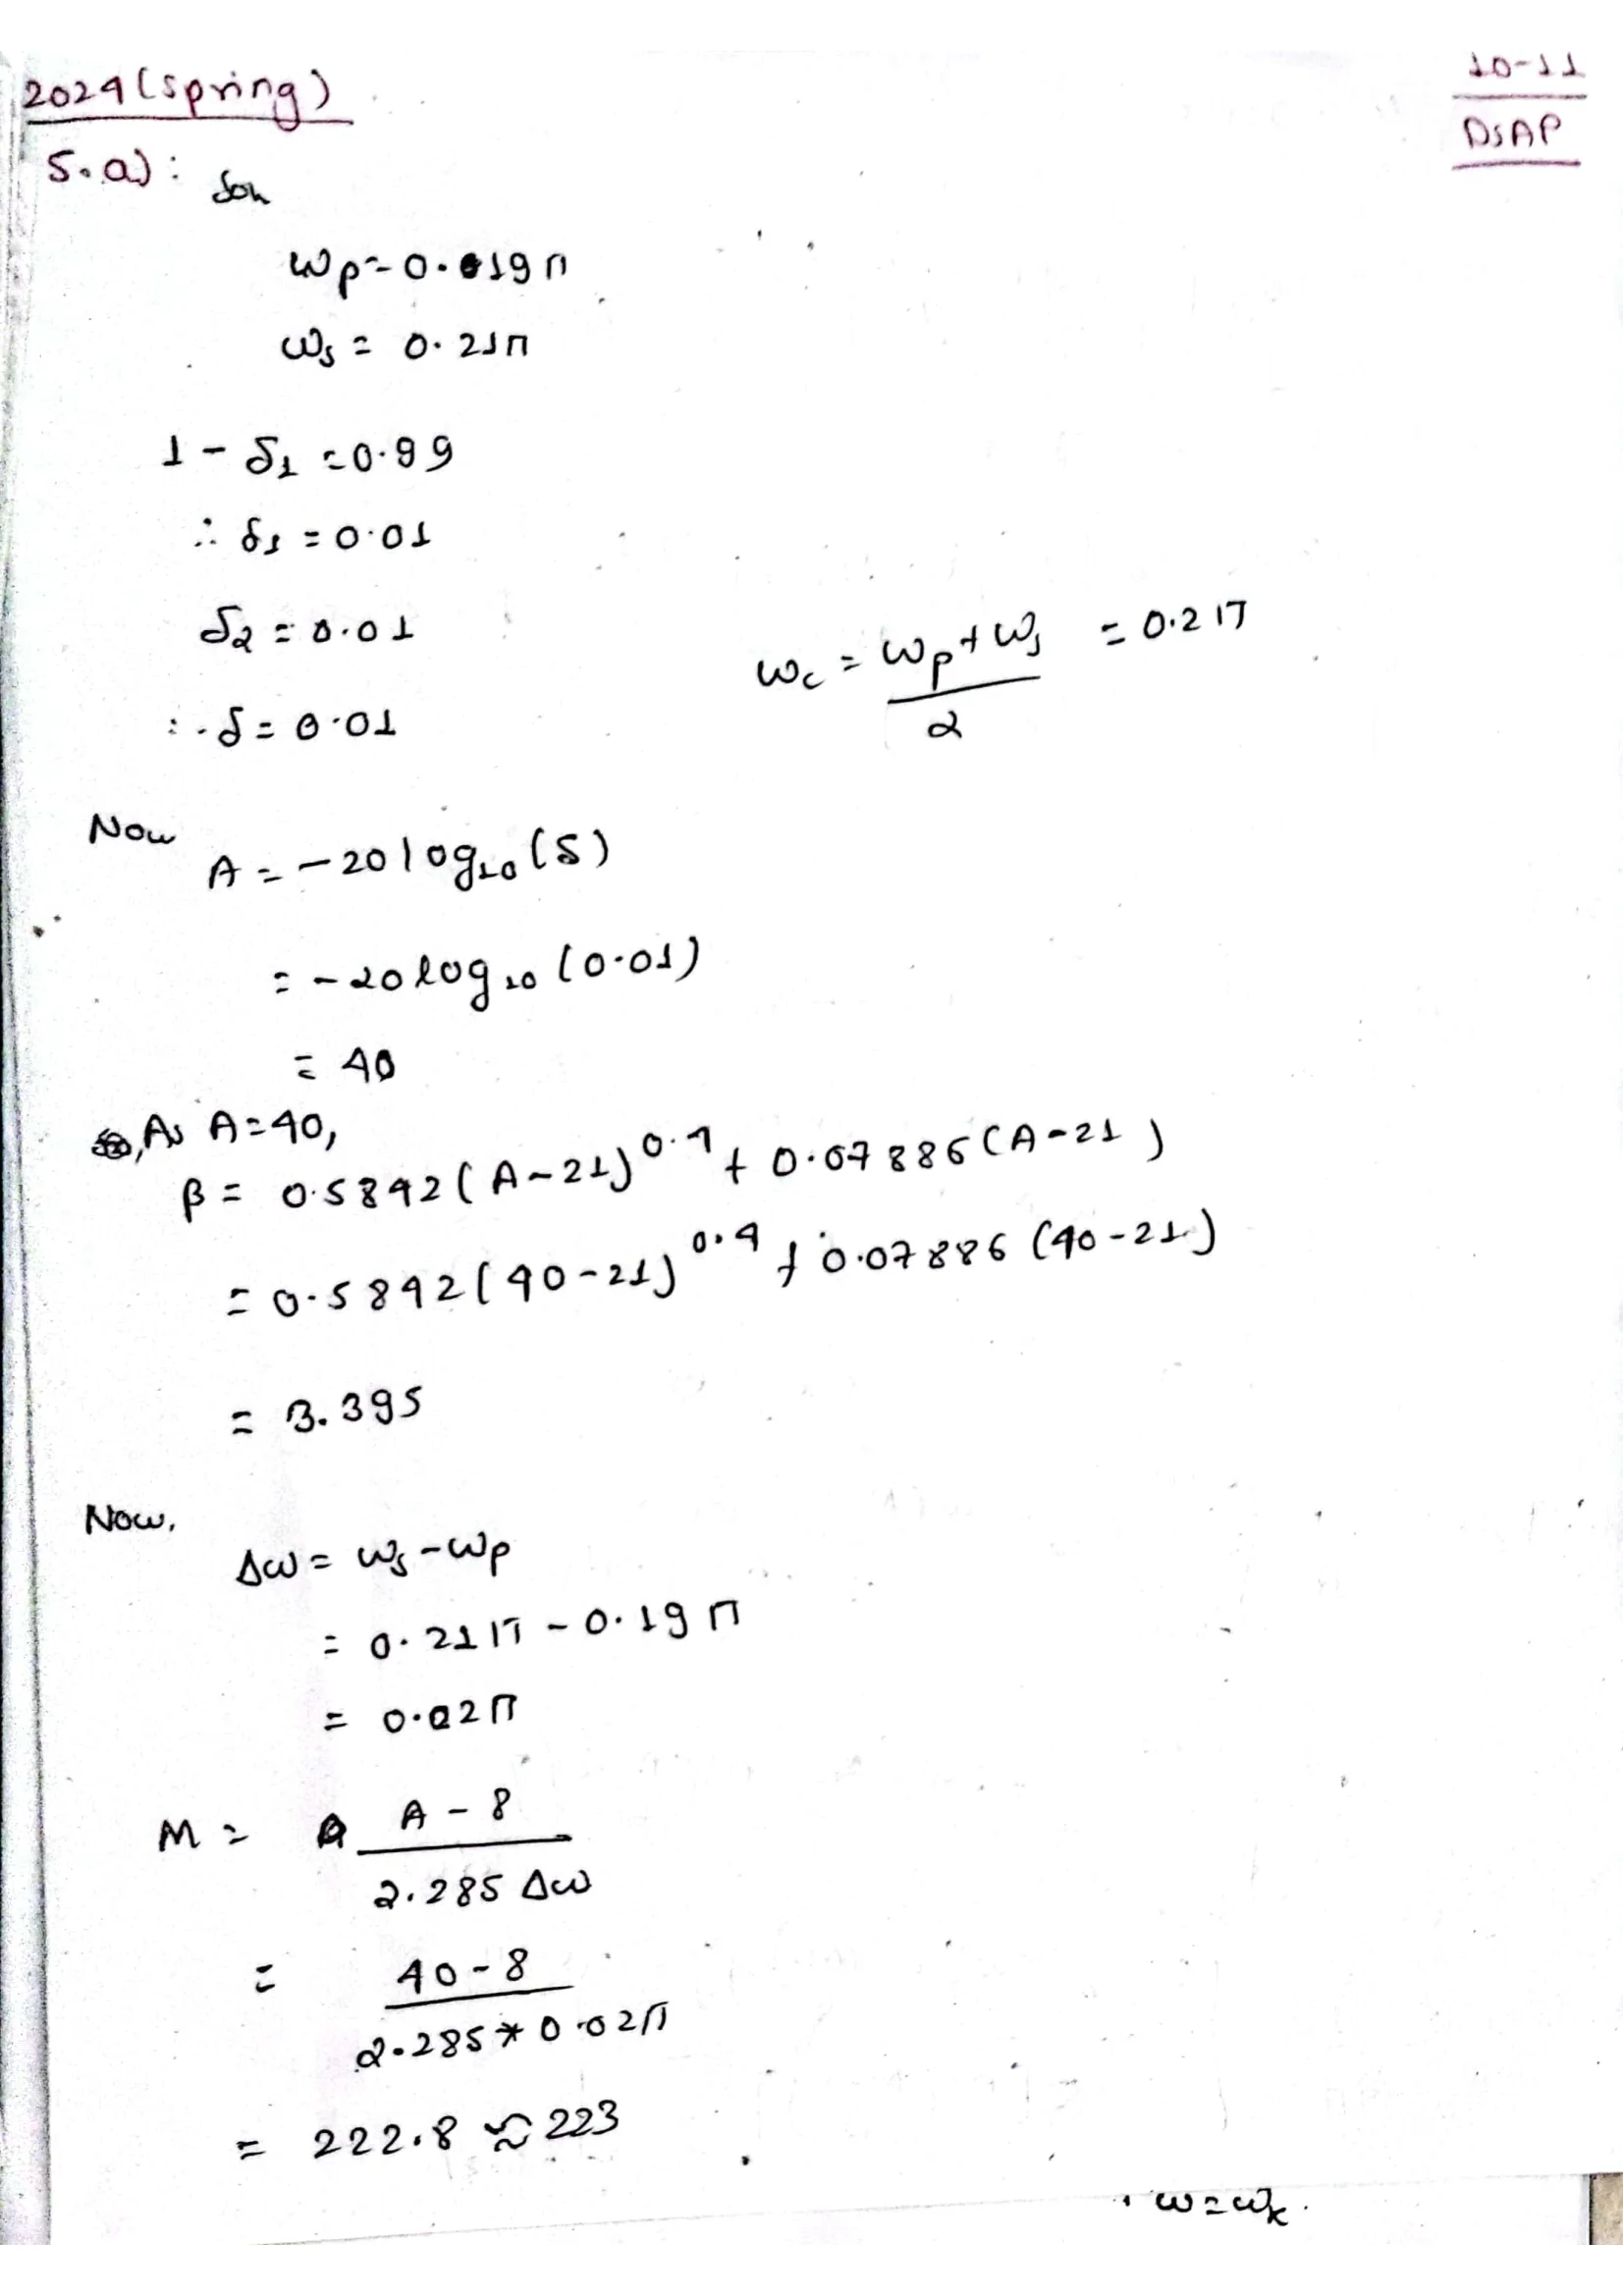 2024 (spring)
10-11
DSAP
5.a): Soln
ωp = 0.019π
ωs = 0.21π
1 - δ1 = 0.99
∴ δ1 = 0.01
δ2 = 0.01
ωc = (ωp + ωs) / 2 = 0.2π
∴ δ = 0.01
Now
A = -20 log10 (δ)
= -20 log10 (0.01)
= 40
, As A = 40,
β = 0.5842 (A - 21)^0.4 + 0.07886 (A - 21)
= 0.5842 (40 - 21)^0.4 + 0.07886 (40 - 21)
= 3.395
Now,
Δω = ωs - ωp
= 0.21π - 0.19π
= 0.02π
M = (A - 8) / (2.285 Δω)
= (40 - 8) / (2.285 * 0.02π)
= 222.8 ≈ 223
ω = ωk.